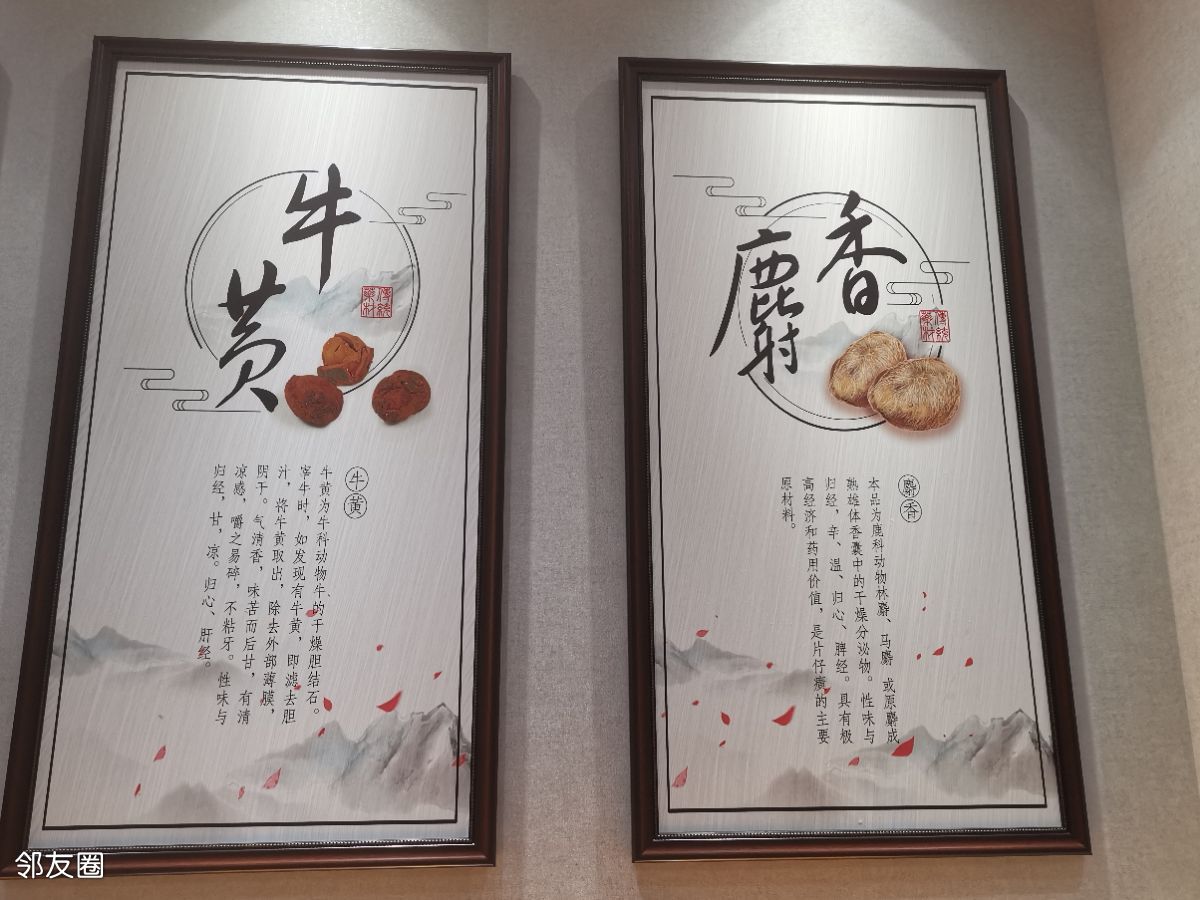 牛黄
傳統药材
牛黄
牛黄为牛科动物牛的干燥胆结石。
宰牛时，如发现有牛黄，即滤去胆
汁，将牛黄取出，除去外部薄膜，
阴干。气清香，味苦而后甘，有清
凉感，嚼之易碎，不粘牙。性味与
归经，甘，凉。归心、肝经。
麝香
傳統药材
麝香
本品为鹿科动物林麝、马麝 或原麝成
熟雄体香囊中的干燥分泌物。性味与
归经，辛、温、归心、脾经。具有极
高经济和药用价值，是片仔癀的主要
原材料。
邻友圈